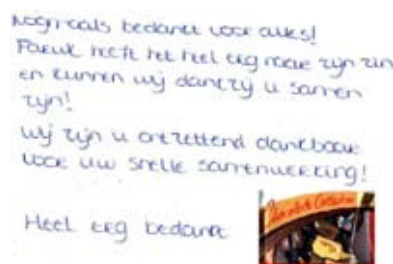 Nogmaals bedankt voor alles!
heeft het heel erg naar zijn zin
en kunnen wij dankzij u samen
zijn!
Wij zijn u ontzettend dankbaar
voor uw snelle samenwerking!
Heel erg bedankt